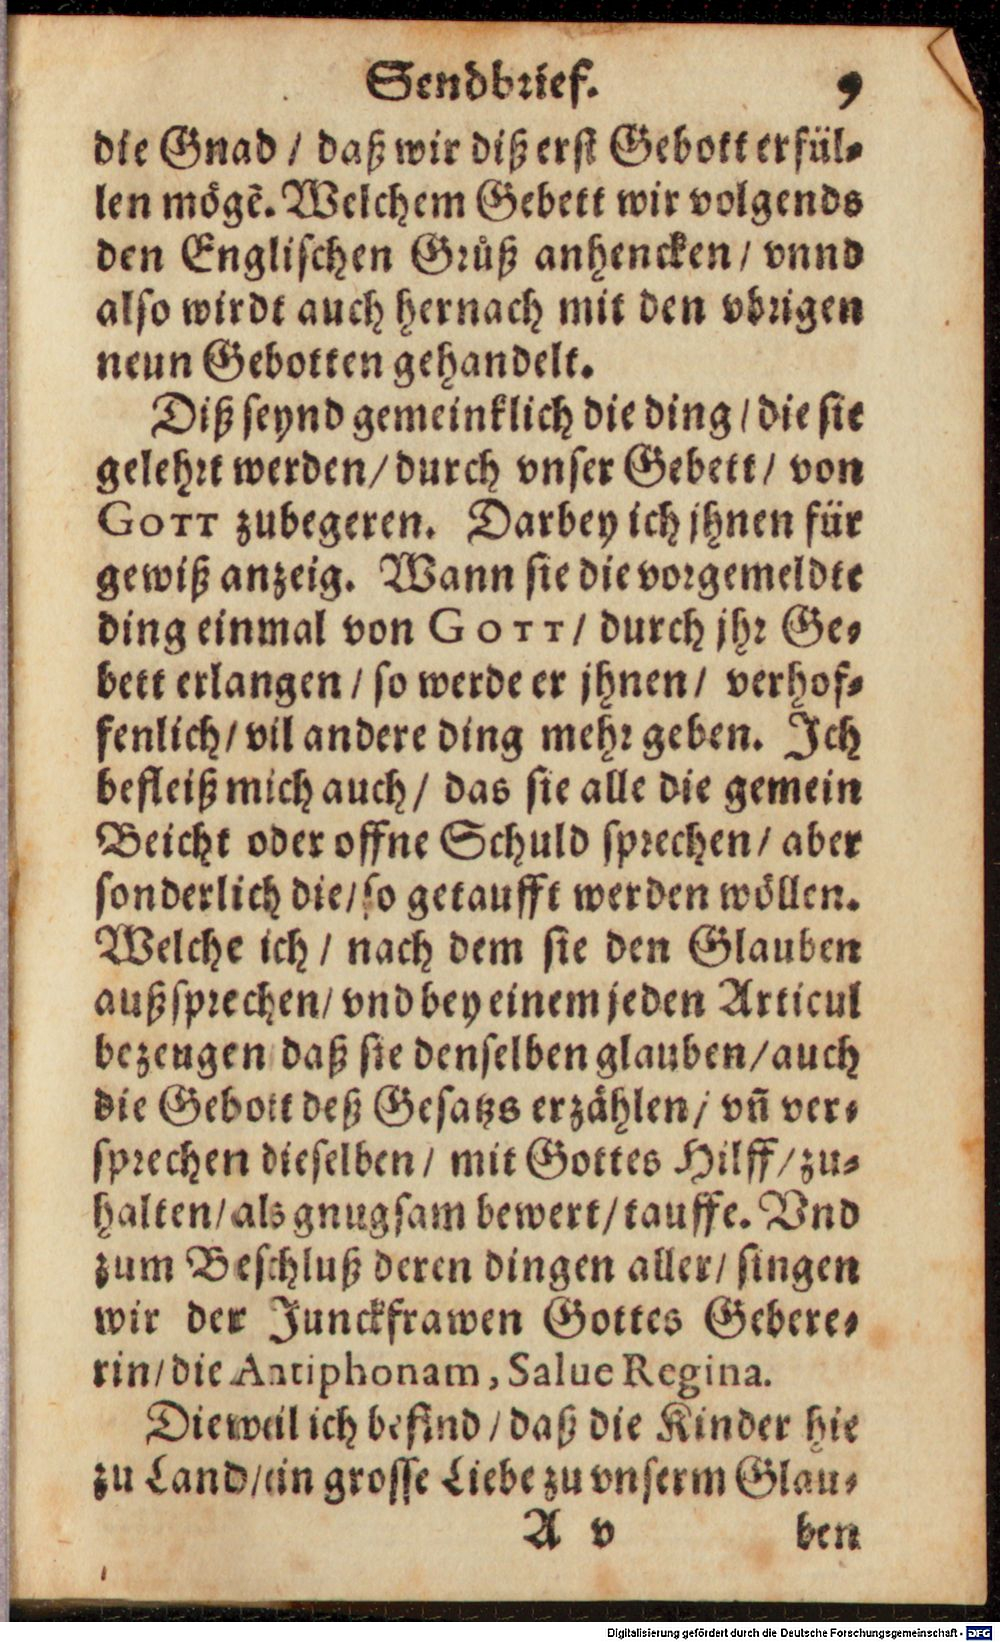 Sendbrief. 9
die Gnad / daß wir diß erst Gebott erfül-
len mögẽ. Welchem Gebett wir volgends
den Englischen Grůß anhencken / vnnd
also wirdt auch hernach mit den vbrigen
neun Gebotten gehandelt.
Diß seynd gemeinklich die ding / die sie
gelehrt werden / durch vnser Gebett / von
GOTT zubegeren. Darbey ich jhnen für
gewiß anzeig. Wann sie die vorgemeldte
ding einmal von GOTT / durch jhr Ge-
bett erlangen / so werde er jhnen / verhof-
fenlich / vil andere ding mehr geben. Ich
befleiß mich auch / das sie alle die gemein
Beicht oder offne Schuld sprechen / aber
sonderlich die / so getaufft werden wöllen.
Welche ich / nach dem sie den Glauben
außsprechen / vnd bey einem jeden Articul
bezeugen daß sie denselben glauben / auch
die Gebott deß Gesatzs erzählen / vñ ver-
sprechen dieselben / mit Gottes Hilff / zu-
halten / als gnugsam bewert / tauffe. Vnd
zum Beschluß deren dingen aller / singen
wir der Junckfrawen Gottes Gebere-
rin / die Antiphonam, Salue Regina.
Dieweil ich befind / daß die Kinder hie
zu Land / ein grosse Liebe zu vnserm Glau-
A v ben
Digitalisierung gefördert durch die Deutsche Forschungsgemeinschaft - DFG